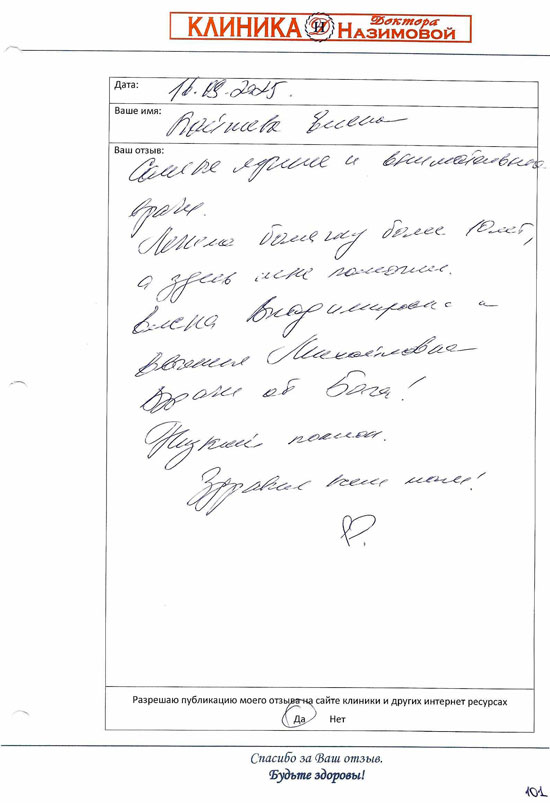 КЛИНИКА Доктора Назимовой
Дата: 16.09.2025.
Ваше имя: Елена
Ваш отзыв:
Самые лучшие и внимательные
врачи.
Лечила болячку более 10 лет,
а здесь мне помогли.
Елена Владимировна и
Евгения Михайловна
Врачи от Бога!
Низкий поклон.
Здравия всем нам!
Разрешаю публикацию моего отзыва на сайте клиники и других интернет ресурсах
Да Нет
Спасибо за Ваш отзыв.
Будьте здоровы!
101